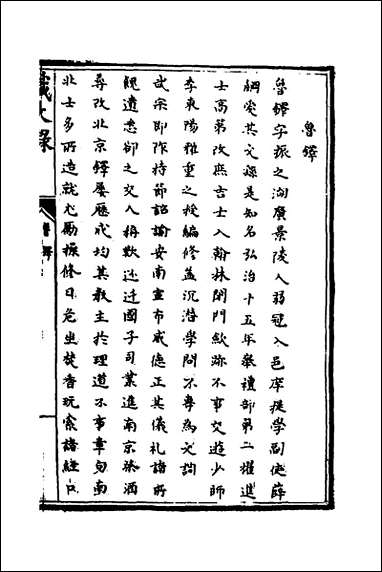 魯鐸
魯鐸字振之湖廣景陵人弱冠入邑庠提學副使薛
綱愛其文繇是知名弘治十五年舉禮部第一擢進
士高第改庶吉士入翰林閉門歛跡不事交遊少師
李東陽雅重之授編修益沉潛學問不專為文詞
武宗即祚持節詔諭安南宣布威德正其儀礼諸所
餽遺悉卻之交人稱歎还迁國子司業進南京祭酒
尋改北京鐸屡歷成均其教主於理道不事章句南
北士多所造就尤勵振修日危坐焚香玩索諸經口